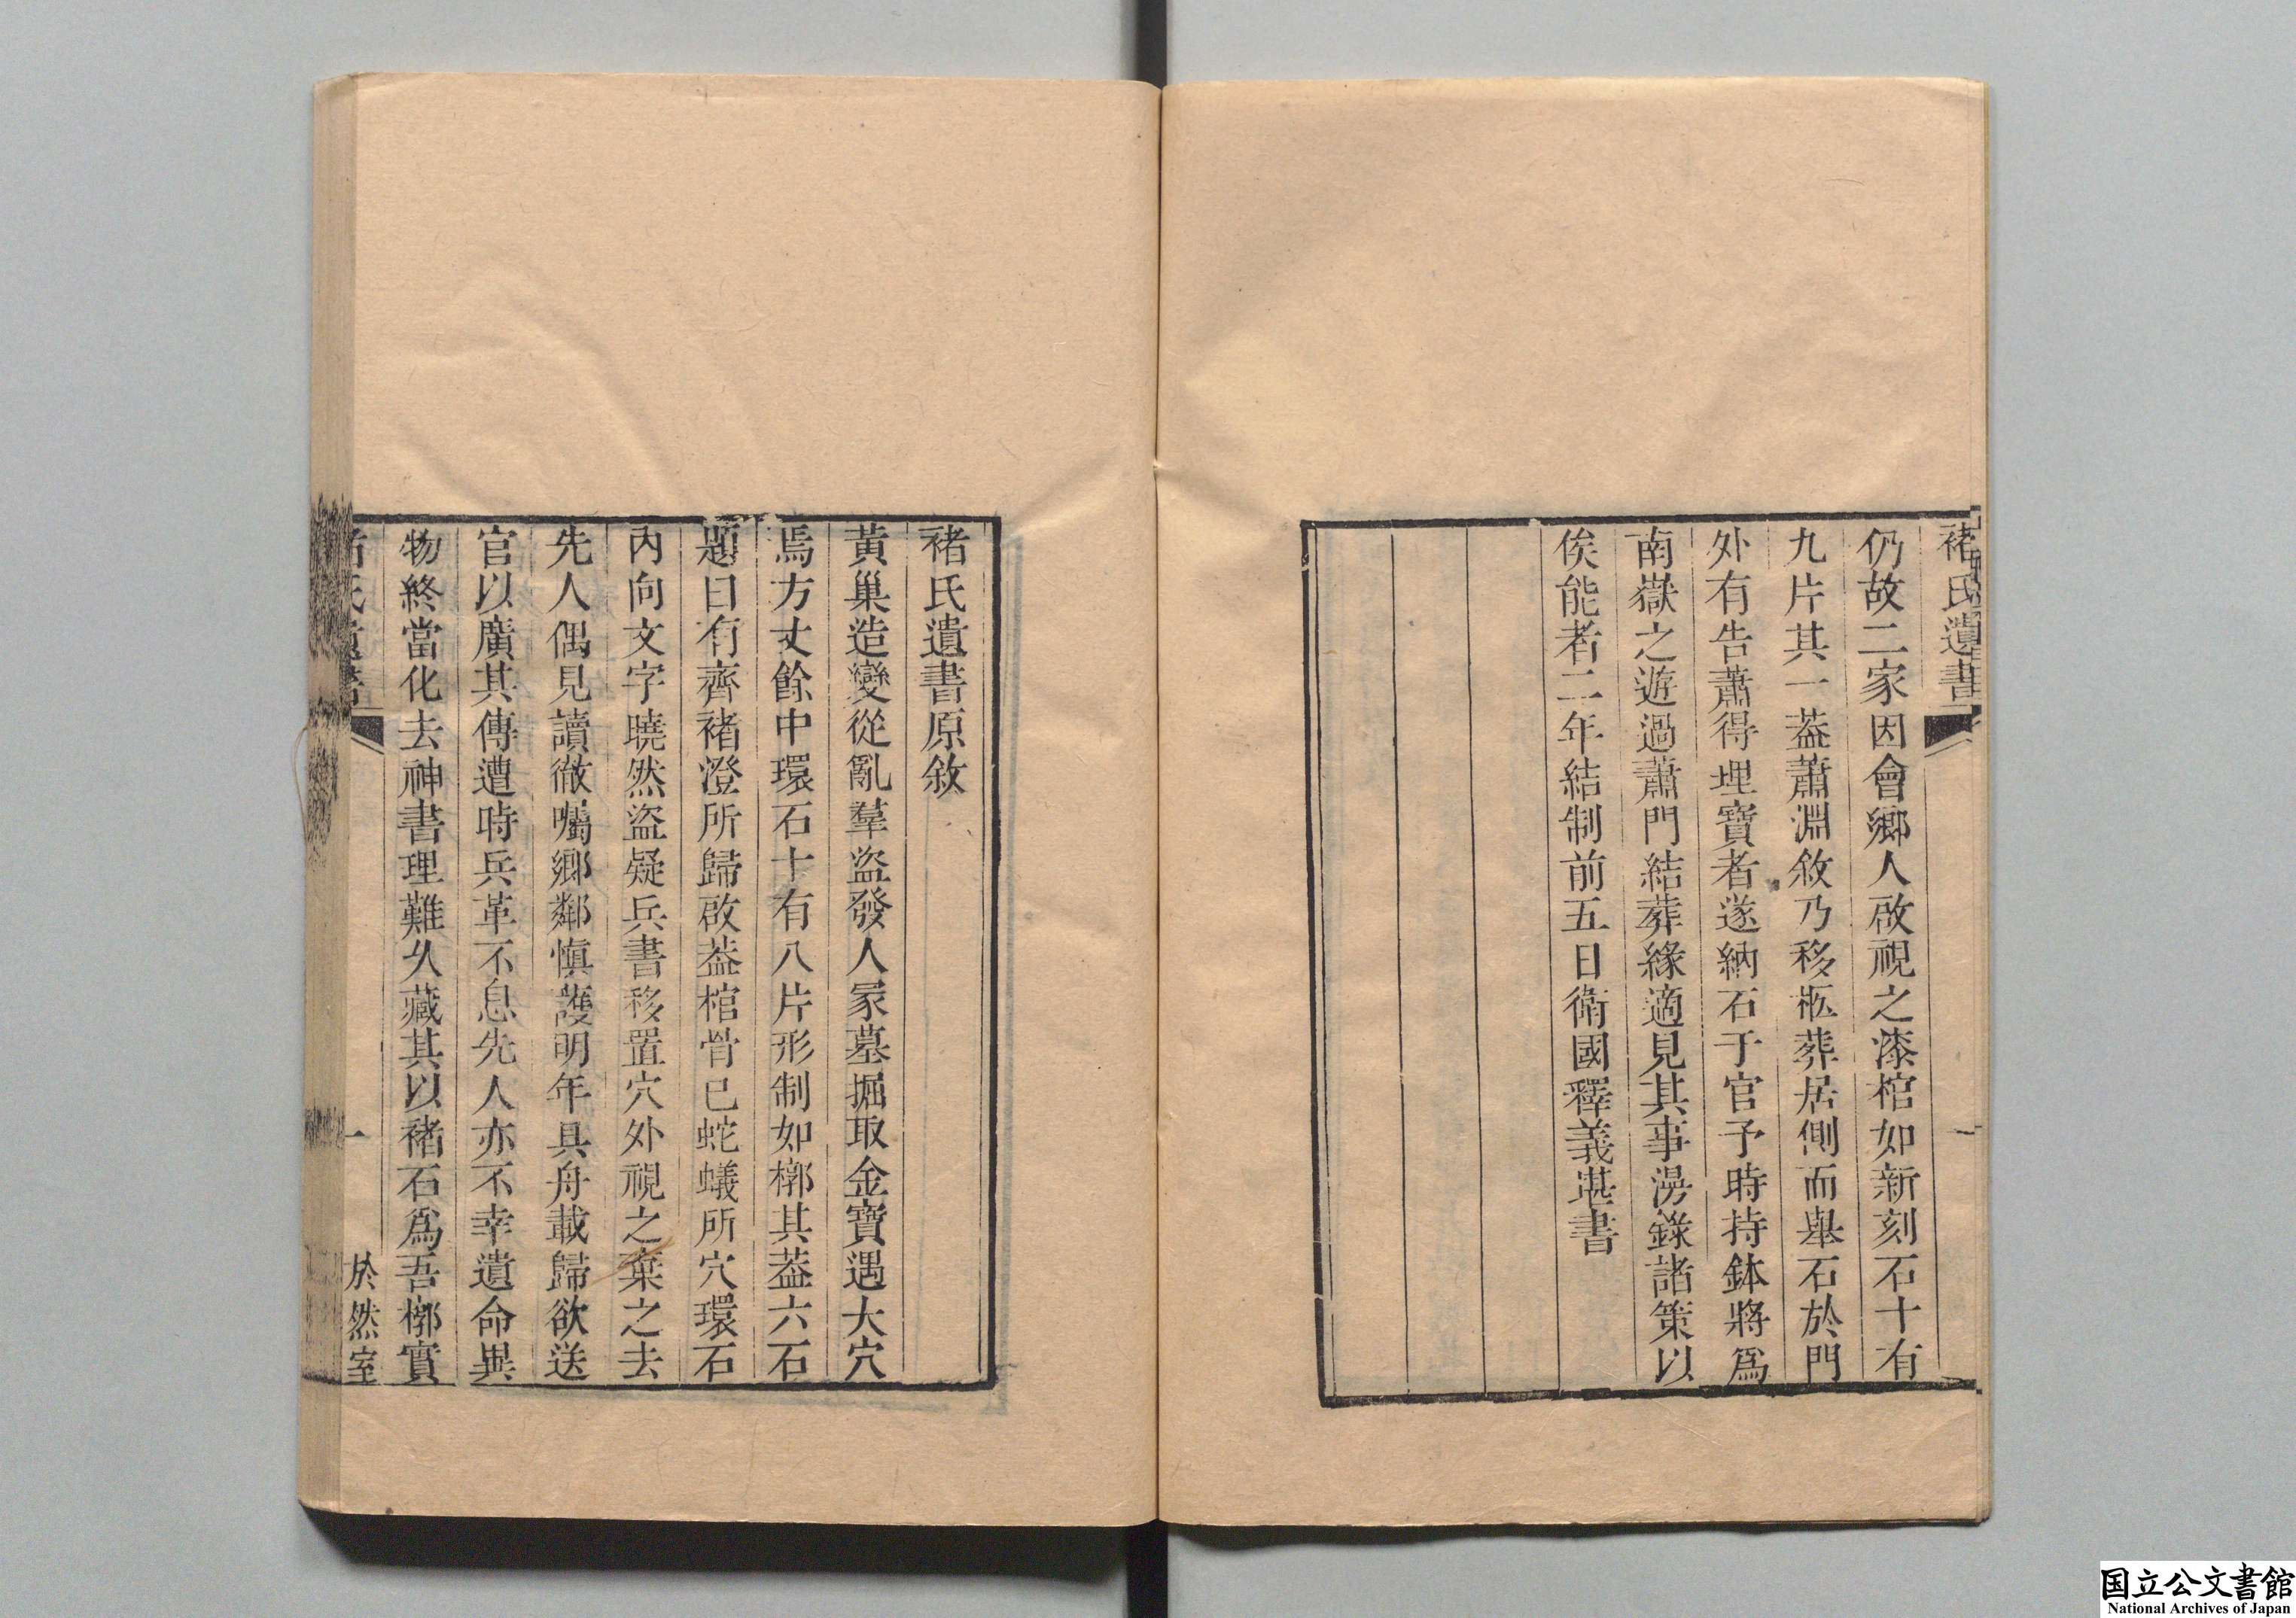 褚氏遺書
一
仍故二家因會鄉人啟視之漆棺如新刻石十有
九片其一葢蕭淵敘乃移柩葬居側而舉石於門
外有告蕭得埋寶者遂納石于官予時持鉢將爲
南嶽之遊過蕭門結葬緣適見其事漫錄諸策以
俟能者二年結制前五日衛國釋義堪書
褚氏遺書原敘
黃巢造變從亂羣盜發人冢墓掘取金寶遇大穴
焉方丈餘中環石十有八片形制如槨其葢六石
題曰有齊褚澄所歸啟葢棺骨已蛇蟻所穴環石
內向文字曉然盜疑兵書移置穴外視之棄之去
先人偶見讀徹囑鄉鄰愼護明年具舟載歸欲送
官以廣其傳遭時兵革不息先人亦不幸遺命異
物終當化去神書理難久藏其以褚石爲吾槨實
褚氏遺書
一
於然室
国立公文書館
National Archives of Japan